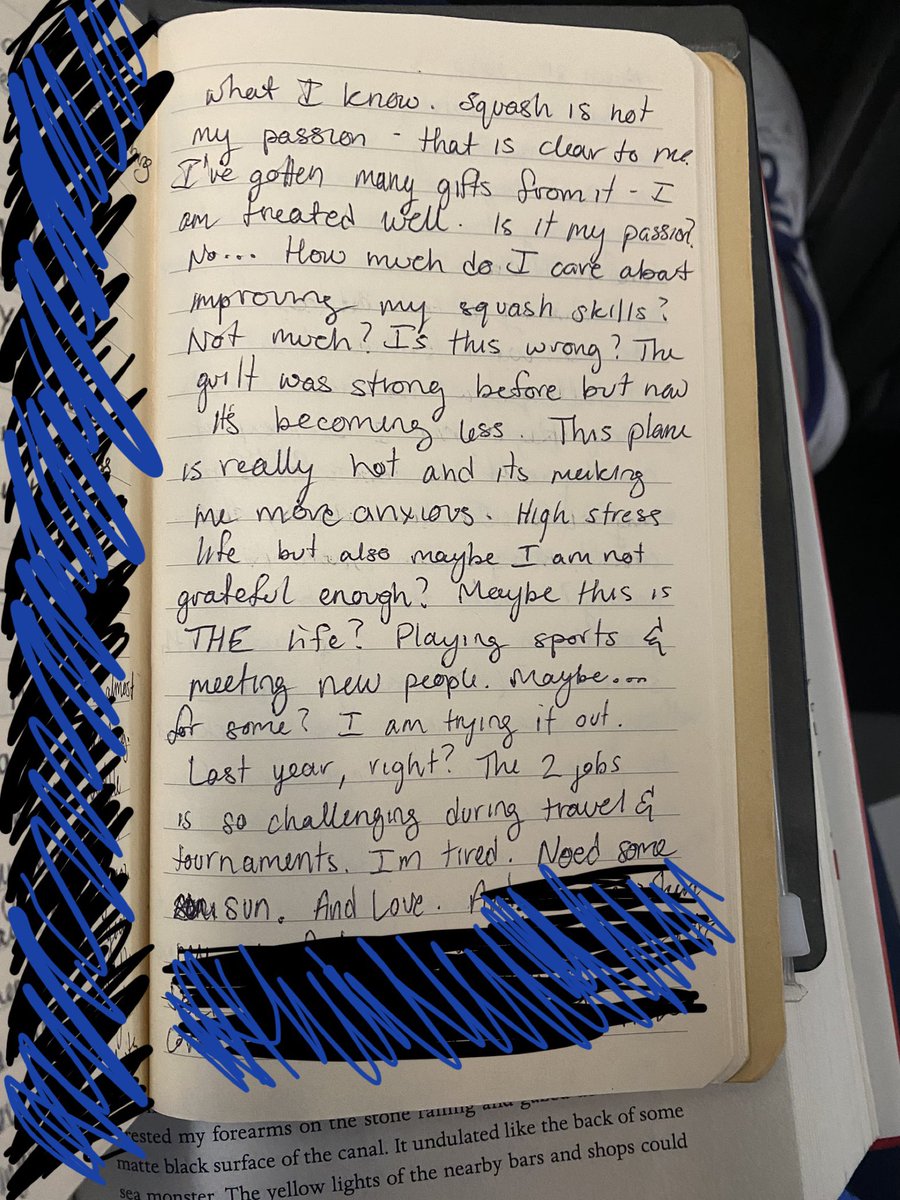 what I know. Squash is not
my passion - that is clear to me.
I've gotten many gifts from it - I
am treated well. Is it my passion?
No... How much do I care about
improving my squash skills?
Not much? Is this wrong? The
guilt was strong before but now
it's becoming less. This plane
is really hot and its making
me more anxious. High stress
life but also maybe I am not
grateful enough? Maybe this is
THE life? Playing sports &
meeting new people. Maybe...
for some? I am trying it out.
Last year, right? The 2 jobs
is so challenging during travel &
tournaments. I'm tired. Need some
sun. And Love.
almost
rested my forearms on the stone railing and
matte black surface of the canal. It undulated like the back of some
sea monster. The yellow lights of the nearby bars and shops could